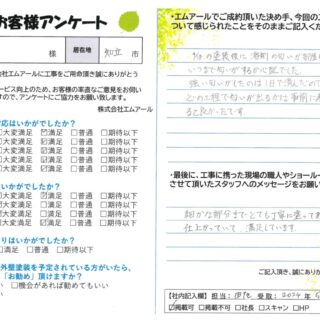 お客様アンケート
様 居在地 知立 市
会社エムアールに工事をご用命頂き誠にありがとう
サービス向上のため、お客様の率直なご意見をお伺い
ますので、アンケートにご協力をお願い致します。
株式会社エムアール
対応はいかがでしたか?
□大変満足 ☑満足 □普通 □期待以下
□大変満足 ☑満足 □普通 □期待以下
□大変満足 ☑満足 □普通 □期待以下
はいかがでしたか?
□大変満足 ☑満足 □普通 □期待以下
□大変満足 ☑満足 □普通 □期待以下
□大変満足 ☑満足 □普通 □期待以下
りはいかがでしたか?
足 □普通 □期待以下
外壁塗装を予定されている方がいたら、
「お勧め」頂けますか?
い □機会があれば勧めてもいい
い
・エムアールでご成約頂いた決め手、今回の工
ついて感じられたことをそのままご記入くだ
いつまで匂いがするか心配でした。
強い匂いがしたのは1日で済んだ
どの工程で匂いが出るかは事前に
ると良かったです。
・最後に、工事に携った現場の職人やショールー
させて頂いたスタッフへのメッセージをお願い
細かな部分までとても丁寧に塗って
仕上がっていて 満足しています。
ご記入頂き、誠にありが
【社内記入欄】担当: 受取: 2024
□掲載可 □掲載不可 □社長 □スキャン □HP